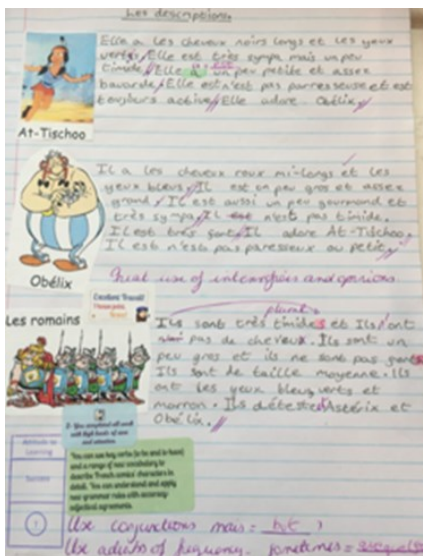 Les descriptions.
Elle a les cheveux noirs longs et les yeux
verts. Elle est très sympa mais un peu
timide. Elle a un peu petite et assez
bavarde. Elle est n'est pas parresseuse et est
toujours active. Elle adore Obélix.
At-Tischoo
Il a les cheveux roux mi-longs et les
yeux bleus. Il est un peu gros et assez
grand. Il est aussi un peu gourmand et
très sympa. Il est n'est pas timide.
Il est très fort. Il adore At-Tischoo.
Il est n'est pas paresseux ou petit.
Obélix
Great use of intensifiers and opinions
Excellent Travail!
plural
Les romains
Ils sont très timides et Ils n'ont
pas de cheveux. Ils sont un
peu gros et ils ne sont pas
Ils sont de taille moyenne. Ils
ont les yeux bleus, verts et
marron. Ils détestent Astérix et
Obélix.
2- You completed all work
with high levels of care
and attention.
Attitude to
Learning
You can use key verbs (to be and to have)
and a range of new vocabulary to
describe French comics' characters in
detail. You can understand and apply
new grammar rules with accuracy-
adjectival agreements.
Success
Use conjunctions mais = but
Use adverbs of frequency. sometimes =